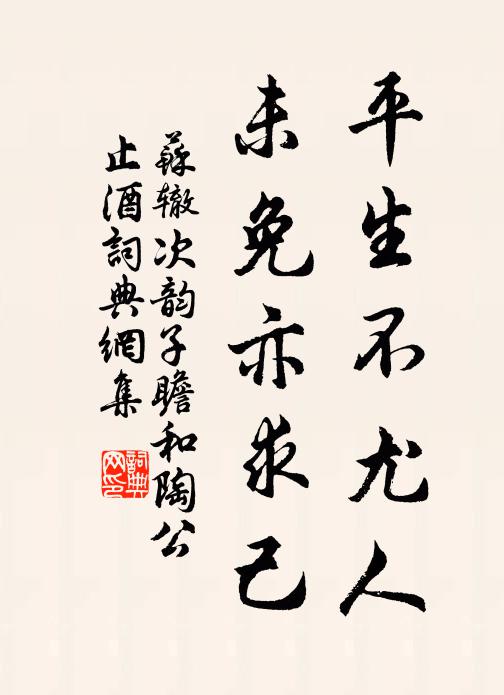 平生不尤人
未免亦求己
蘇辙次韵子瞻和陶公
止酒詞典網集
詞典
网印